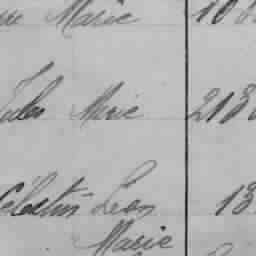 Marie 10
Jules Marie 213
Célestin Léon 13
Marie